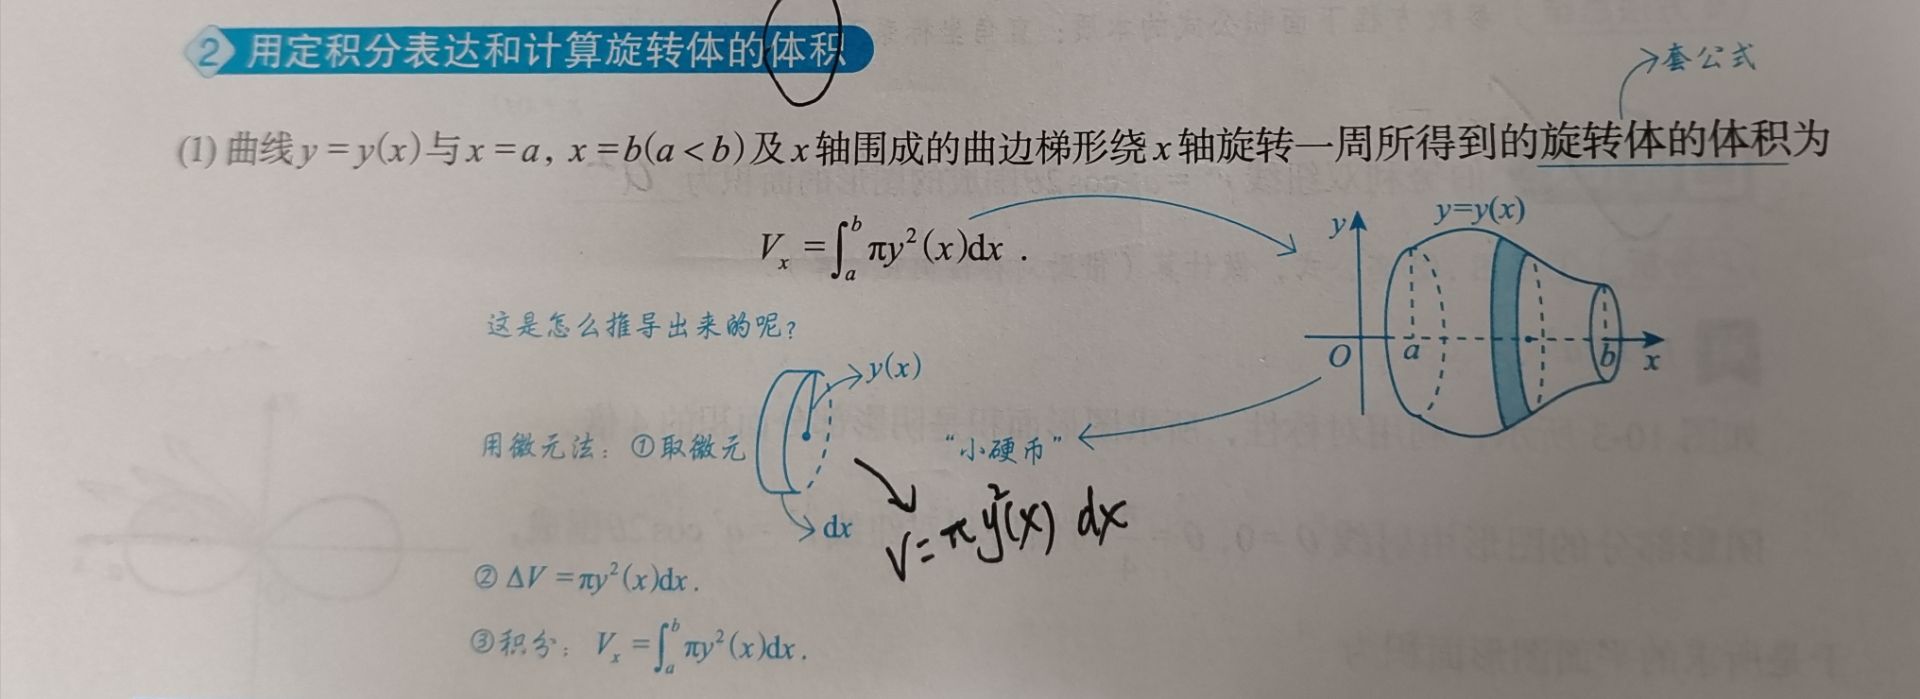 2 用定积分表达和计算旋转体的体积
套公式
(1) 曲线 y = y(x) 与 x = a, x = b(a < b) 及 x 轴围成的曲边梯形绕 x 轴旋转一周所得到的旋转体的体积为
Vₓ = ∫ₐᵇ πy²(x)dx .
y
y=y(x)
O
a
b
x
这是怎么推导出来的呢?
y(x)
用微元法: ①取微元
“小硬币”
dx
V = πy²(x) dx
② ΔV = πy²(x)dx .
③积分: Vₓ = ∫ₐᵇ πy²(x)dx .